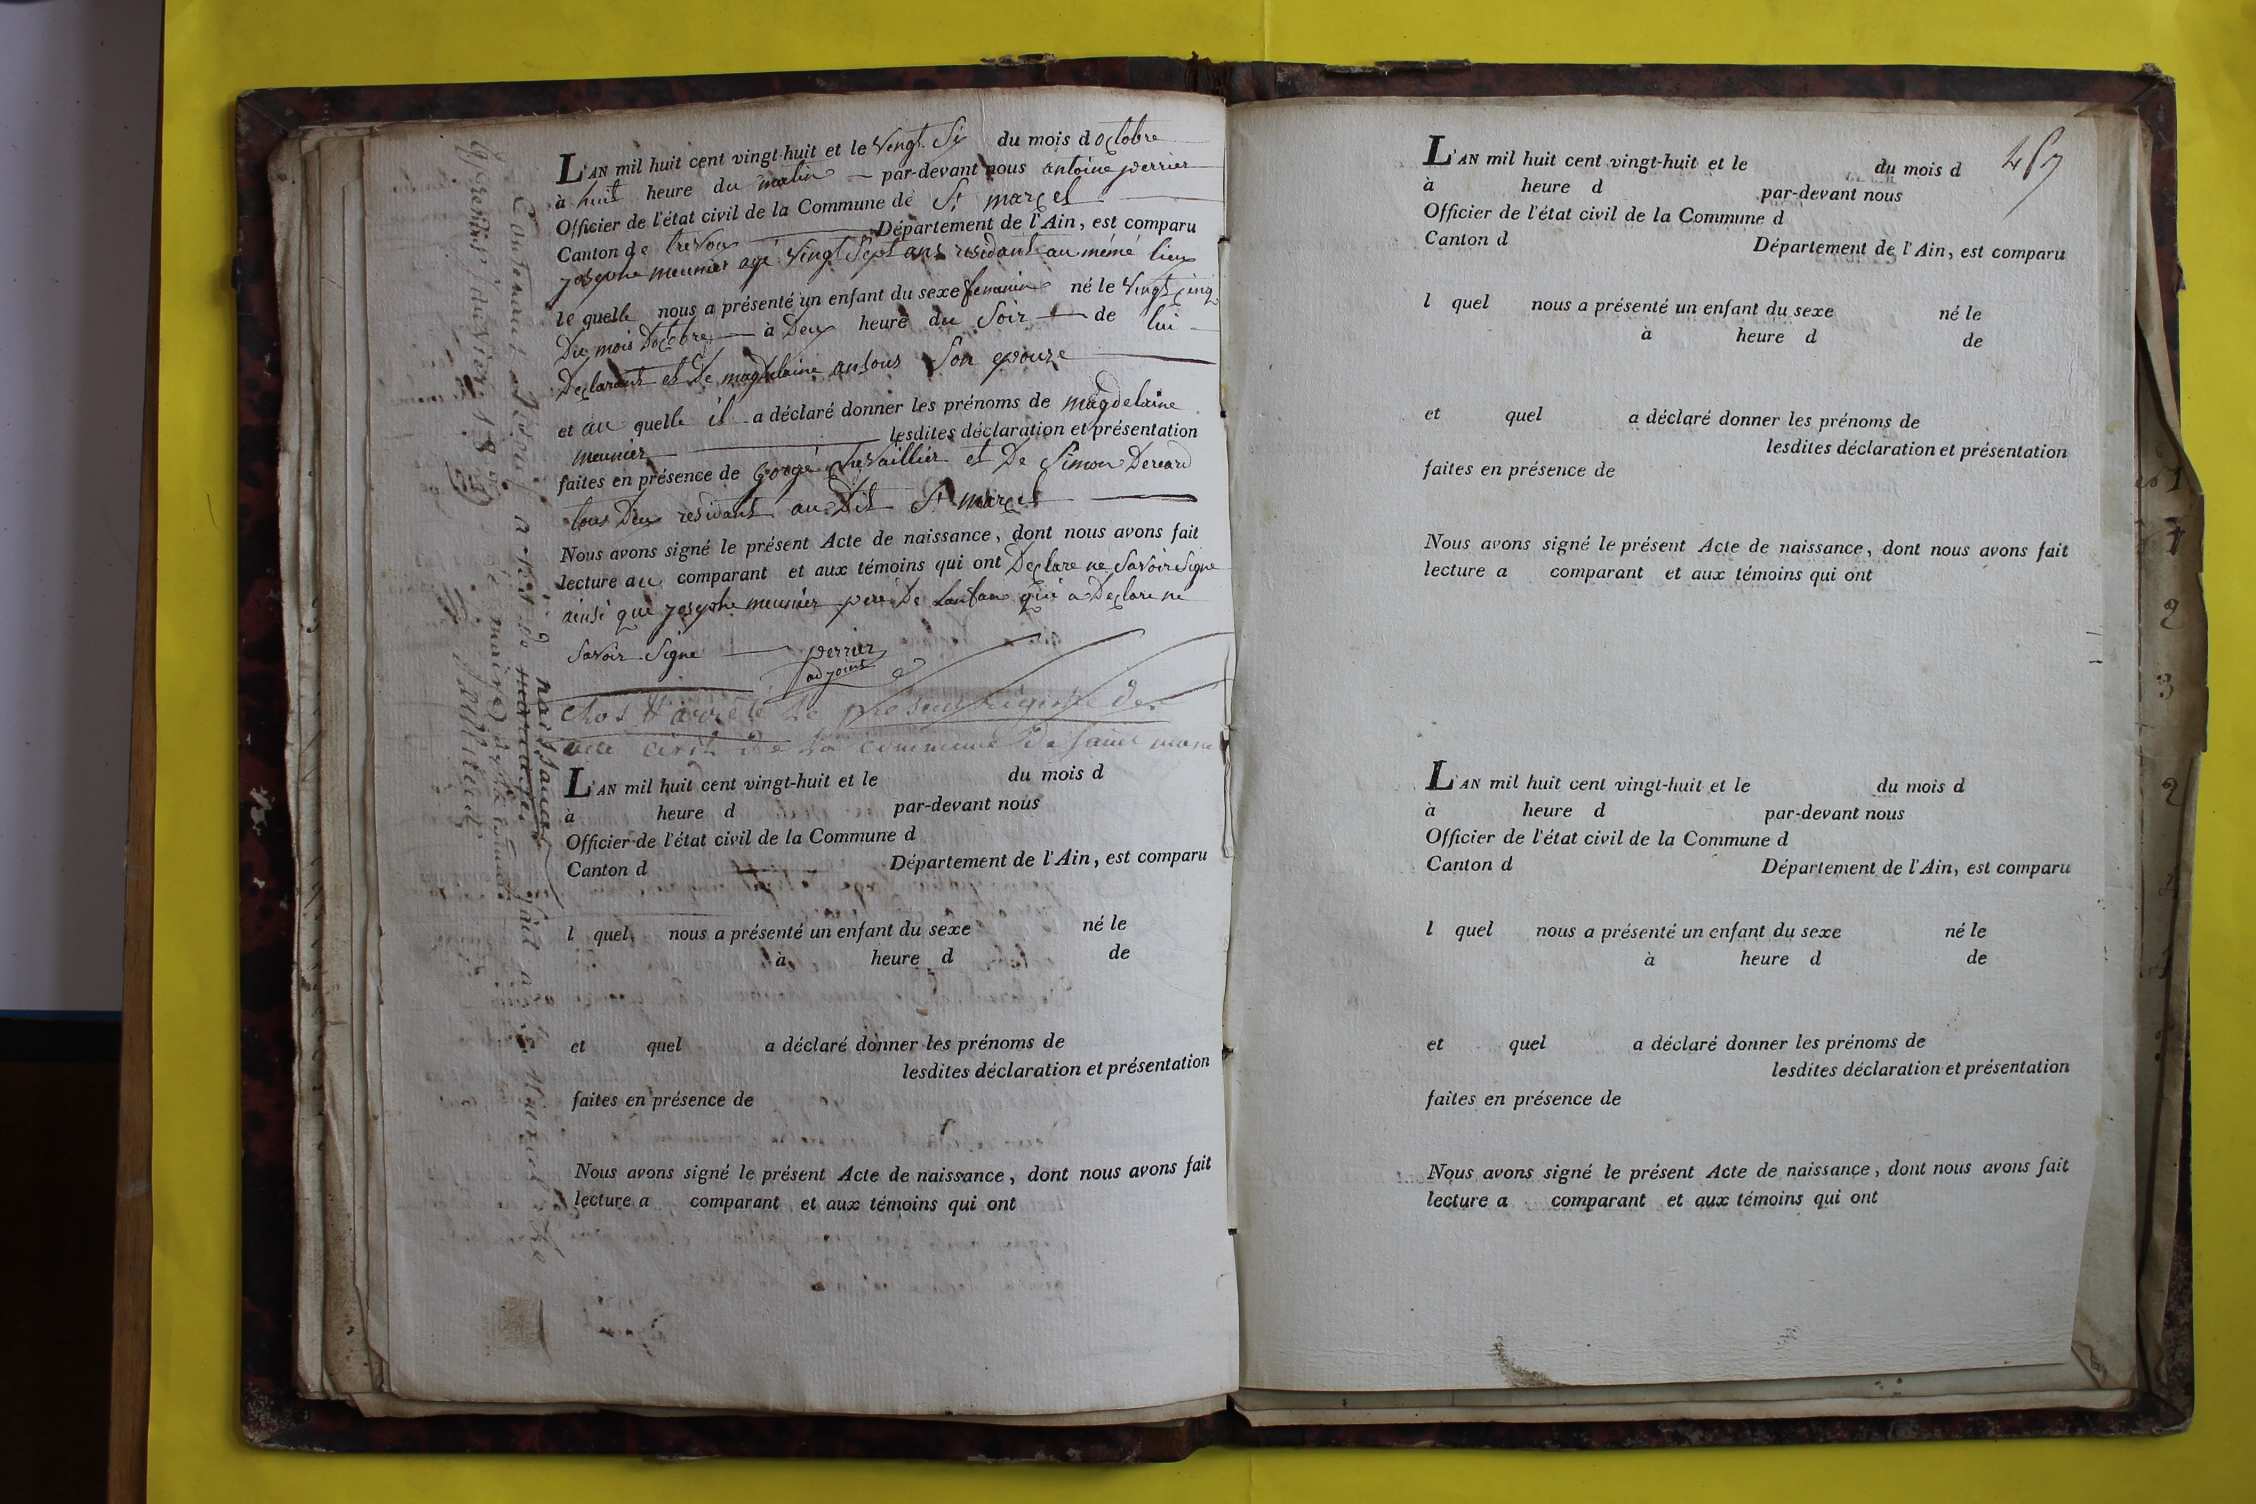 L'AN mil huit cent vingt-huit et le vengt Six du mois doctobre
à huit heure du matin par-devant nous antoine perrier
Officier de l'état civil de la Commune de St marcel
Canton de trevou Département de l'Ain, est comparu
josephe meunier agé vingt Sept ans residant au mémé lieu
le quelle nous a présenté un enfant du sexe feminin né le Vingt cinq
Du mois Doctobre à Deux heure du Soir de lui
Declarant et De magdelaine Son epouze
et au quelle il a déclaré donner les prénoms de magdelaine
meunier lesdites déclaration et présentation
faites en présence de et De Simon
tous Deux residant au Dit St marcel
Nous avons signé le présent Acte de naissance, dont nous avons fait
lecture au comparant et aux témoins qui ont Declare ne Savoir Signe
ainsi que josephe meunier pere De Lanfan qui a Declare ne
Savoir Signe perrier
adjoint
Clos & arreté le présent régistre de
civil de la commune de Saint marcel
L'AN mil huit cent vingt-huit et le du mois d
à heure d par-devant nous
Officier de l'état civil de la Commune d
Canton d Département de l'Ain, est comparu
l quel nous a présenté un enfant du sexe né le
à heure d de
et quel a déclaré donner les prénoms de
lesdites déclaration et présentation
faites en présence de
Nous avons signé le présent Acte de naissance, dont nous avons fait
lecture a comparant et aux témoins qui ont
Contenant naissances fait
janvier 18
457
L'AN mil huit cent vingt-huit et le du mois d
à heure d par-devant nous
Officier de l'état civil de la Commune d
Canton d Département de l'Ain, est comparu
l quel nous a présenté un enfant du sexe né le
à heure d de
et quel a déclaré donner les prénoms de
lesdites déclaration et présentation
faites en présence de
Nous avons signé le présent Acte de naissance, dont nous avons fait
lecture a comparant et aux témoins qui ont
L'AN mil huit cent vingt-huit et le du mois d
à heure d par-devant nous
Officier de l'état civil de la Commune d
Canton d Département de l'Ain, est comparu
l quel nous a présenté un enfant du sexe né le
à heure d de
et quel a déclaré donner les prénoms de
lesdites déclaration et présentation
faites en présence de
Nous avons signé le présent Acte de naissance, dont nous avons fait
lecture a comparant et aux témoins qui ont
1
1
2
3
2